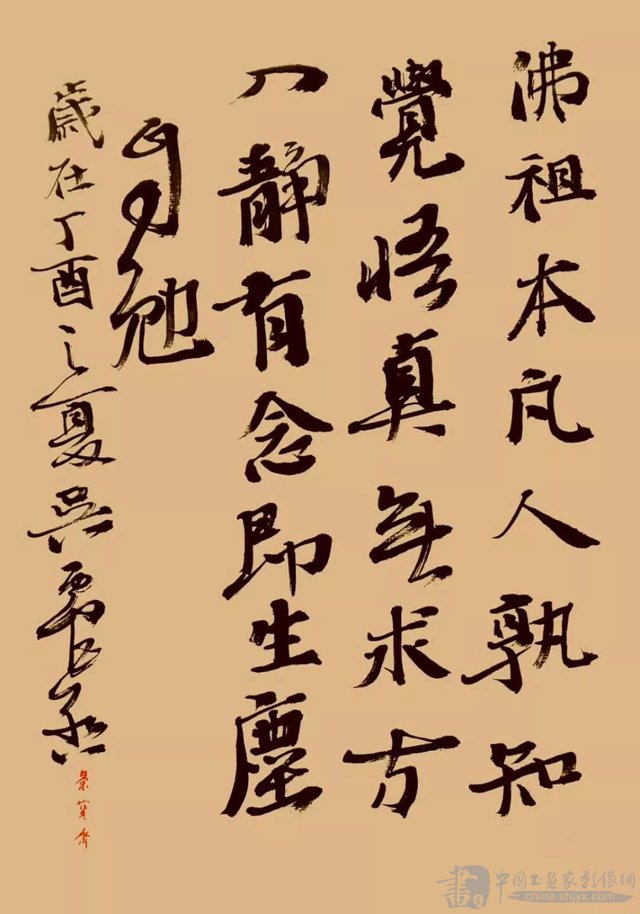 佛祖本凡人孰知
覺悟真無求方
入静有念即生塵
自勉
歲在丁酉之夏吳震
中国书画家影像網
china-shjyx.com